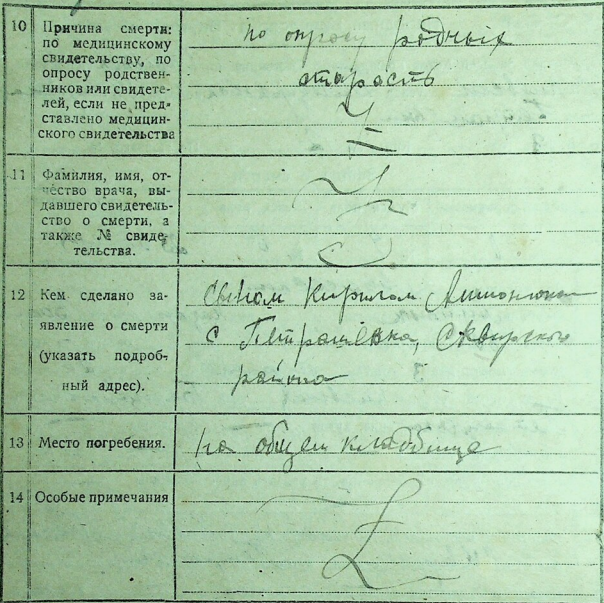 10 Причина смерти:
по медицинскому
свидетельству, по
опросу родствен-
ников или свидете-
лей, если не пред-
ставлено медицин-
ского свидетельства
по опросу родных
старость
11 Фамилия, имя, от-
чество врача, вы-
давшего свидетель-
ство о смерти, а
также № свиде-
тельства.
12 Кем сделано за-
явление о смерти
(указать подроб-
ный адрес).
сыном Кирилом
с Петрашевка, Сквирского
района
13 Место погребения.
на общем кладбище
14 Особые примечания